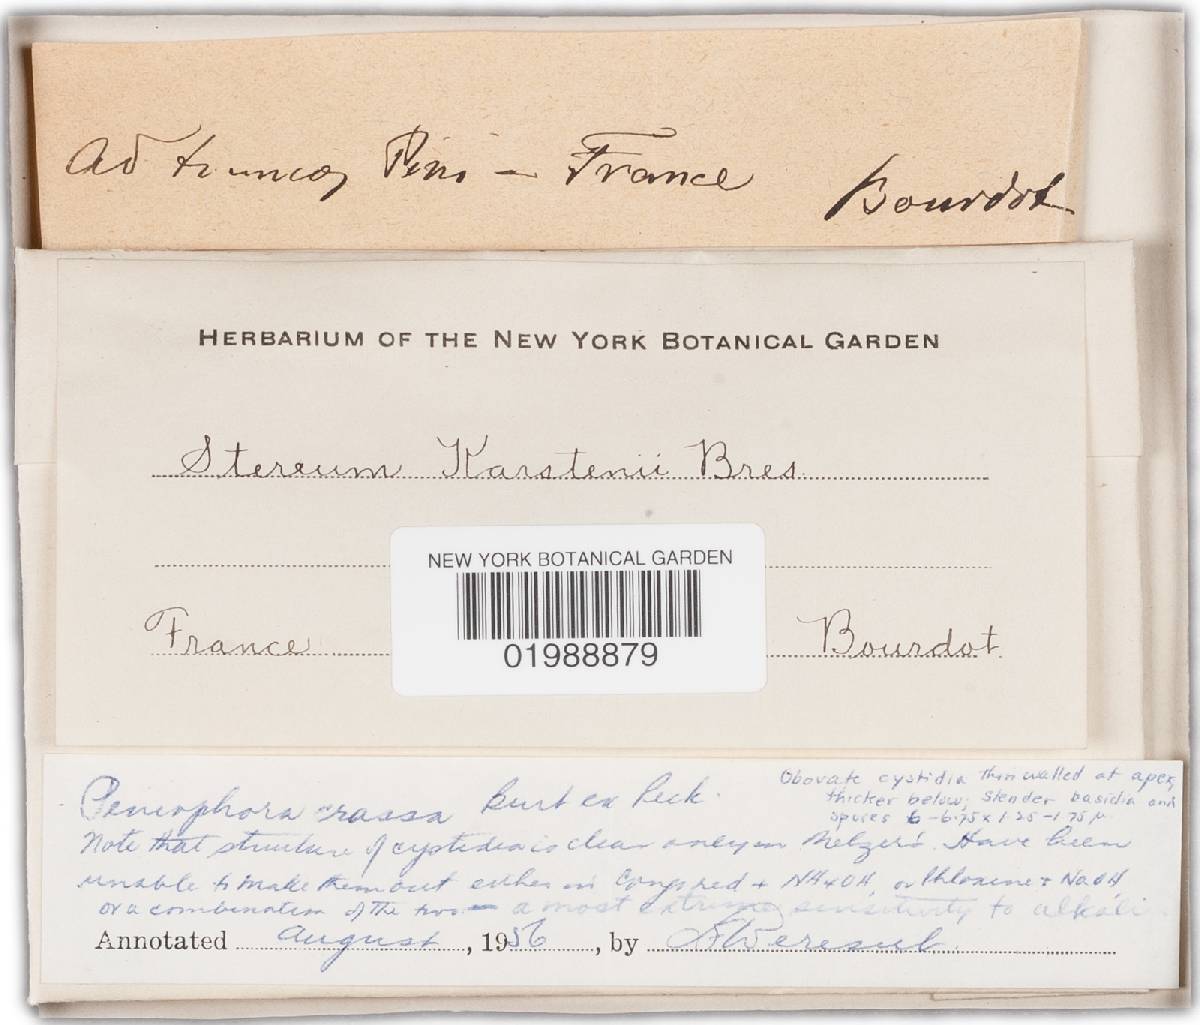 Ad truncos Pini — France
Bourdot
HERBARIUM OF THE NEW YORK BOTANICAL GARDEN
Stereum Karstenii Bres.
NEW YORK BOTANICAL GARDEN
01988879
France
Bourdot
Peniophora crassa Burt ex Peck.
Obovate cystidia thin walled at apex,
thicker below; slender basidia and
spores 6-6.75 x 1.25-1.75 µ
Note that structure of cystidia is clear only in Melzer's. Have been
unable to make them out either in Congo red + NH4OH, or Phloxine + NaOH
or a combination of the two — a most extreme sensitivity to alkali.
Annotated August, 1956, by